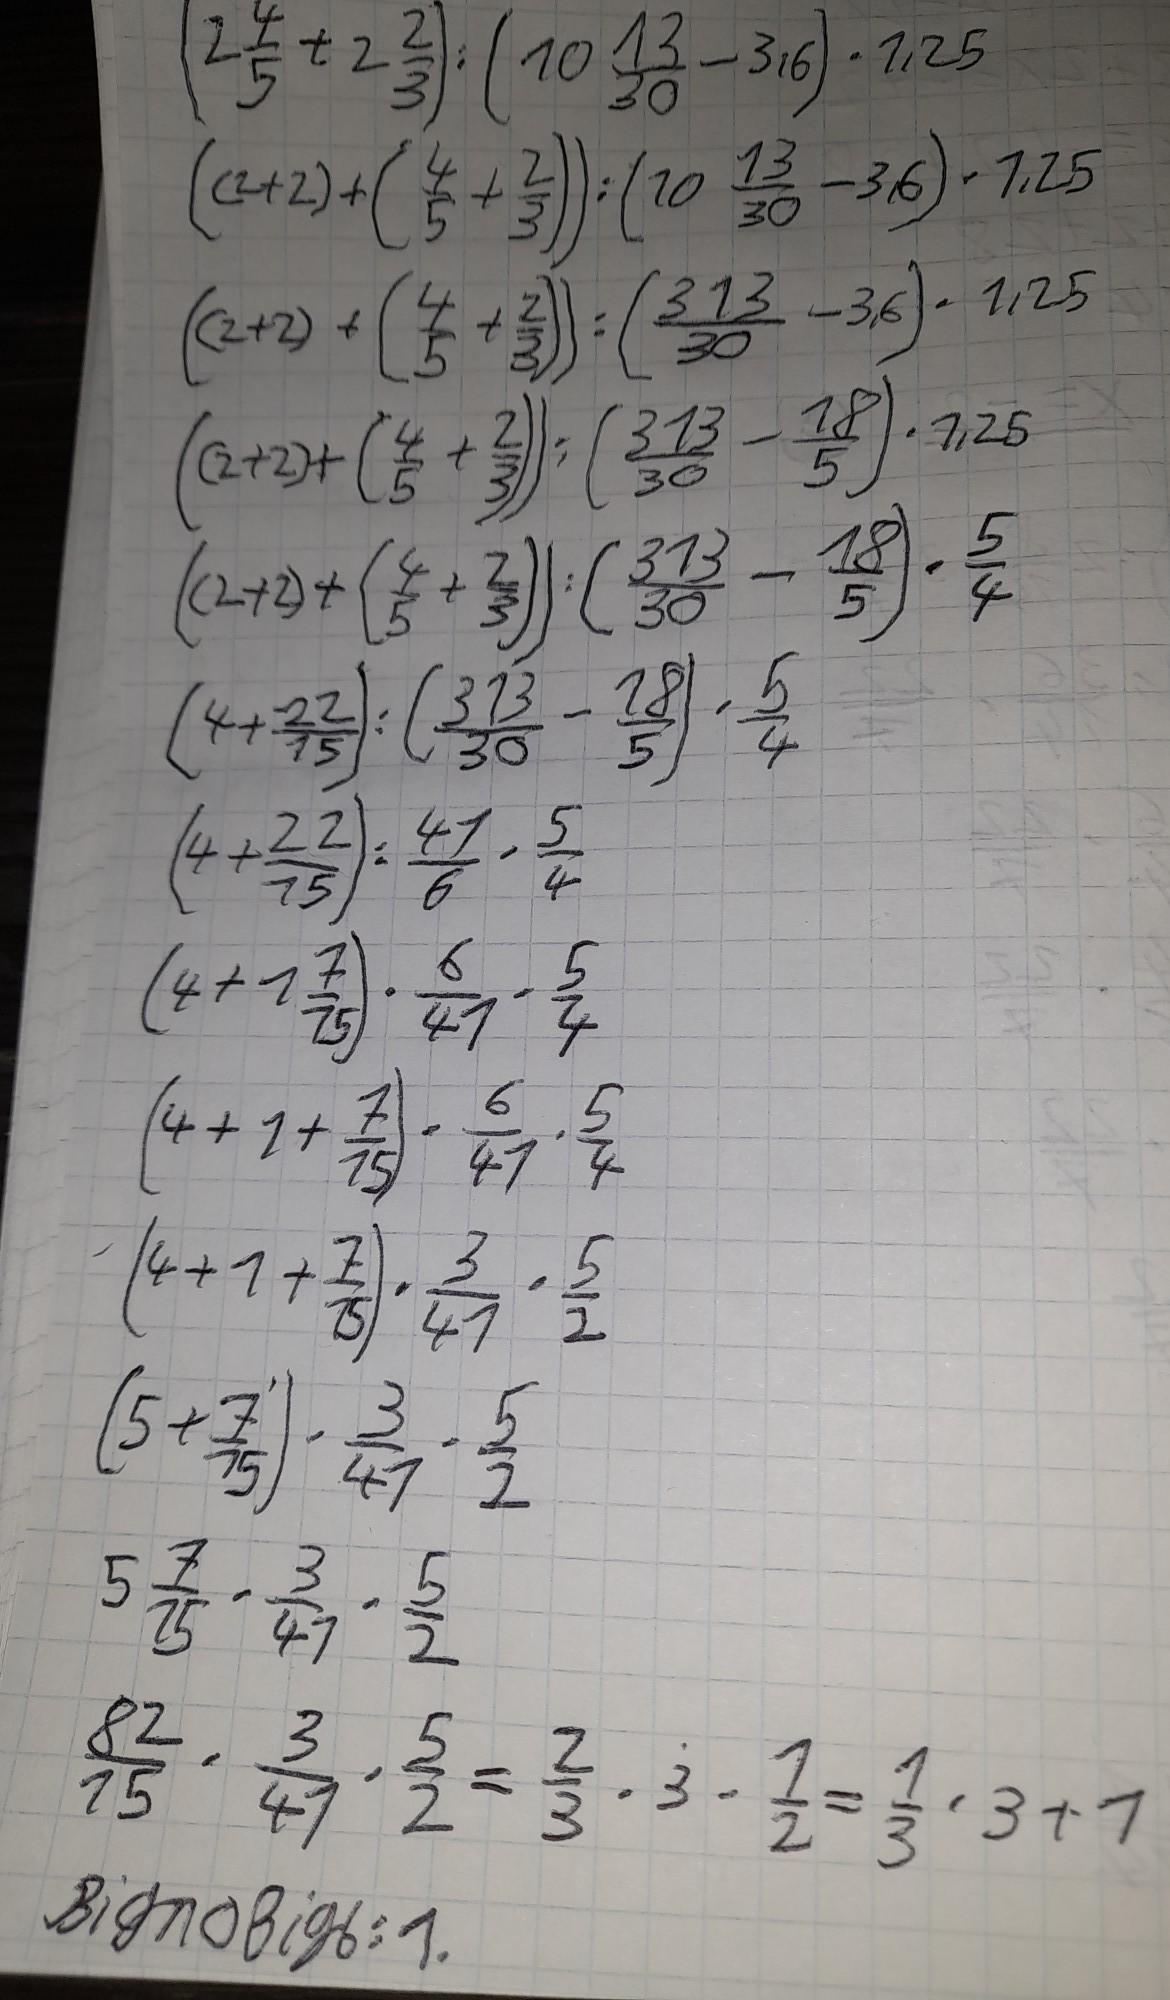 (2 4/5 + 2 2/3) : (10 13/30 - 3,6) · 1,25
((2+2)+(4/5 + 2/3)) : (10 13/30 - 3,6) · 1,25
((2+2) + (4/5 + 2/3)) : (313/30 - 3,6) · 1,25
((2+2)+(4/5 + 2/3)) : (313/30 - 18/5) · 1,25
((2+2)+(4/5 + 2/3)) : (313/30 - 18/5) · 5/4
(4+22/15) : (313/30 - 18/5) · 5/4
(4+22/15) : 41/6 · 5/4
(4+1 7/15) · 6/41 · 5/4
(4+1+7/15) · 6/41 · 5/4
(4+1+7/15) · 3/41 · 5/2
(5+7/15) · 3/41 · 5/2
5 7/15 · 3/41 · 5/2
82/15 · 3/41 · 5/2 = 2/3 · 3 · 1/2 = 1/3 · 3 + 1
Відповідь: 1.